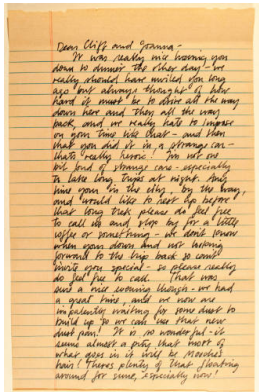 Dear Cliff and Joanna -
It was really nice having you
down to dinner the other day - we
really should have invited you long
ago but always thought of how
hard it must be to drive all the way
down here and then all the way
back, and we really hate to impose
on your time like that - and then
that you did it in a strange car -
that's really heroic! I'm not one
bit fond of strange cars - especially
on late long trips at night. Any
time your in the city, by the way,
and would like to rest up before
that long trek please do feel free
to call us and stop by for a little
coffee or something - we don't know
when your down and not looking
forward to the trip back so can't
invite you special - so please really
do feel free to call. That was
sure a nice evening though - we had
a great time, and we now are
impatiently waiting for some dust to
build up so we can use that new
dust pan! It is so wonderful - it
seems almost a pity that most of
what goes in it will be
hair! There's plenty of that floating
around for sure, specially now!